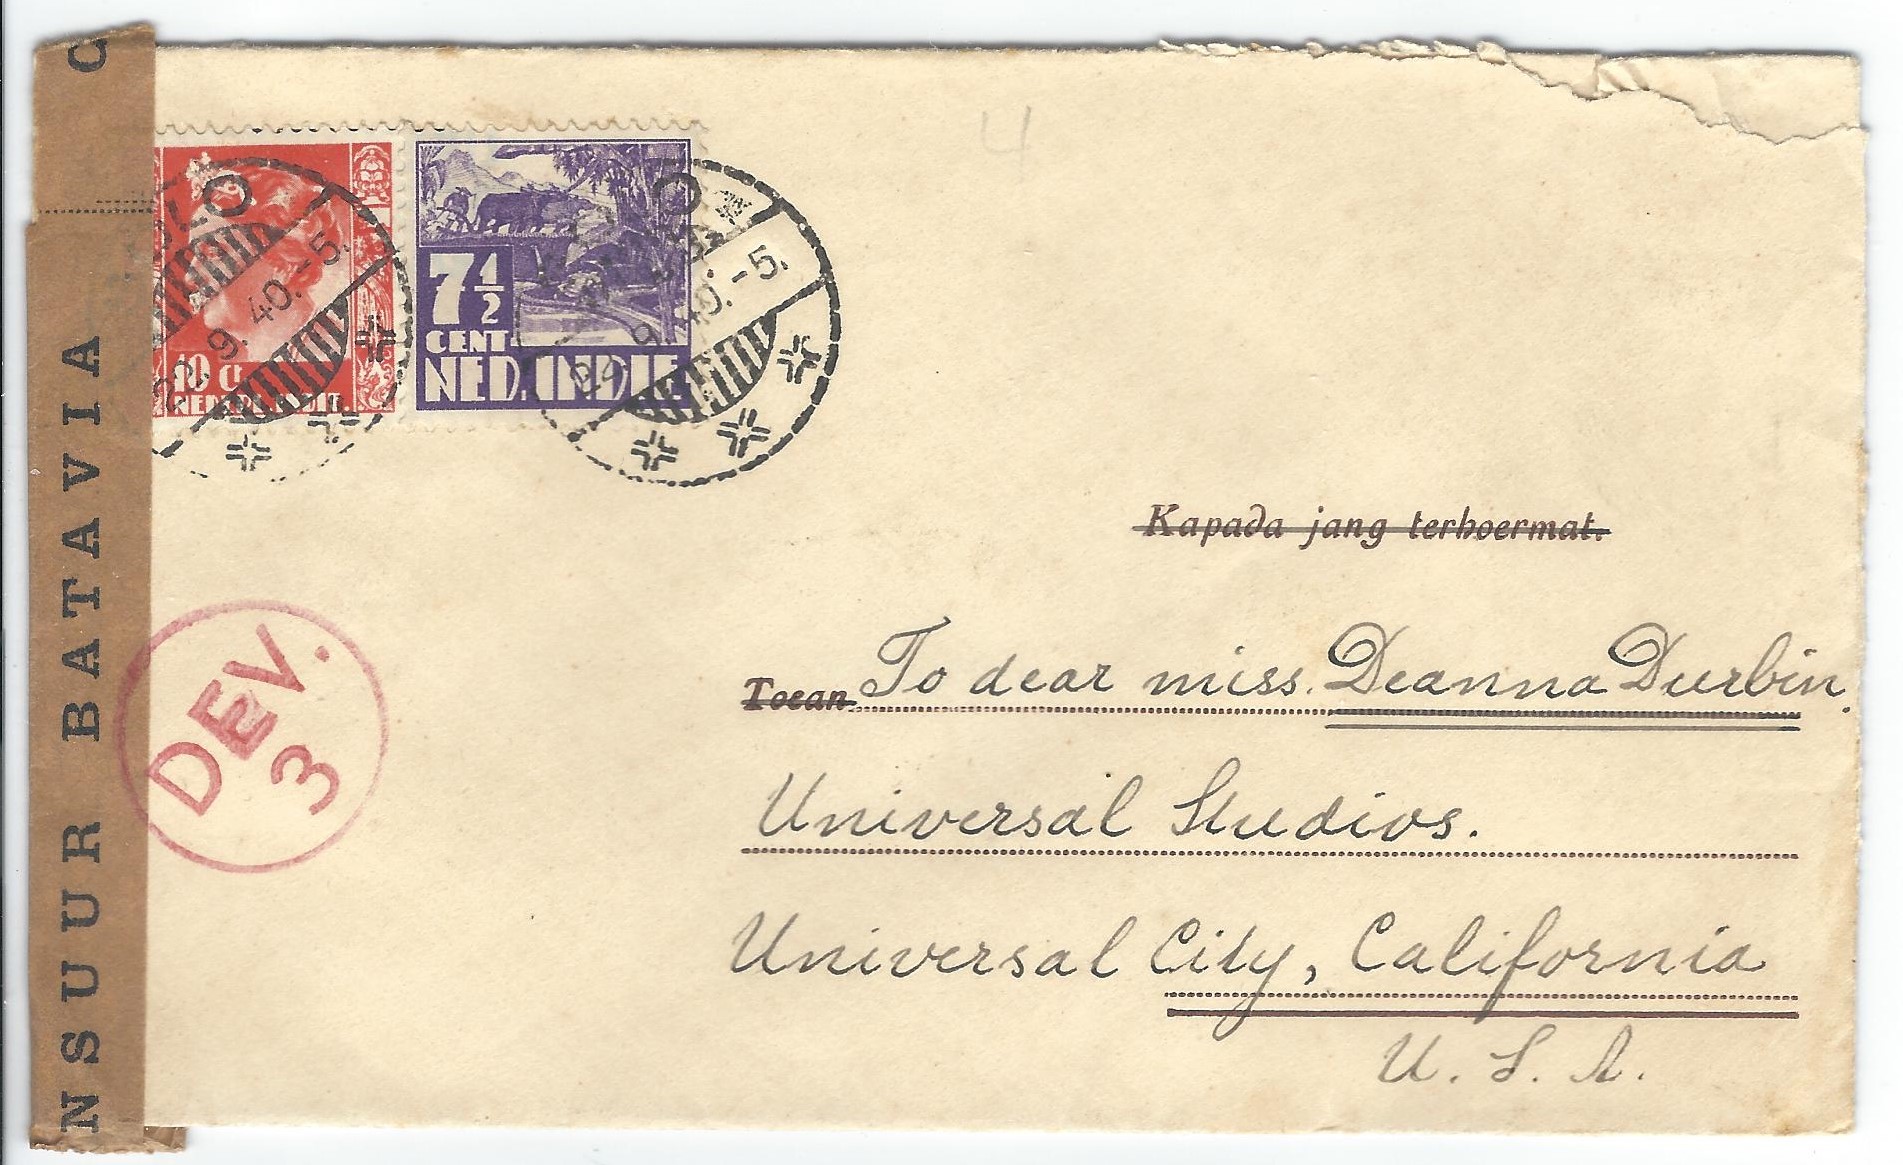 C
NSUUR BATAVIA
22. 9. 40.-5.
10 Ct
NED. INDIE
22. 9. 40.-5.
7 1/2
CENT
NED. INDIE
4
Kapada jang terhoermat.
DEV.
3
Toean To dear miss. Deanna Durbin.
Universal Studios.
Universal City, California
U. S. A.